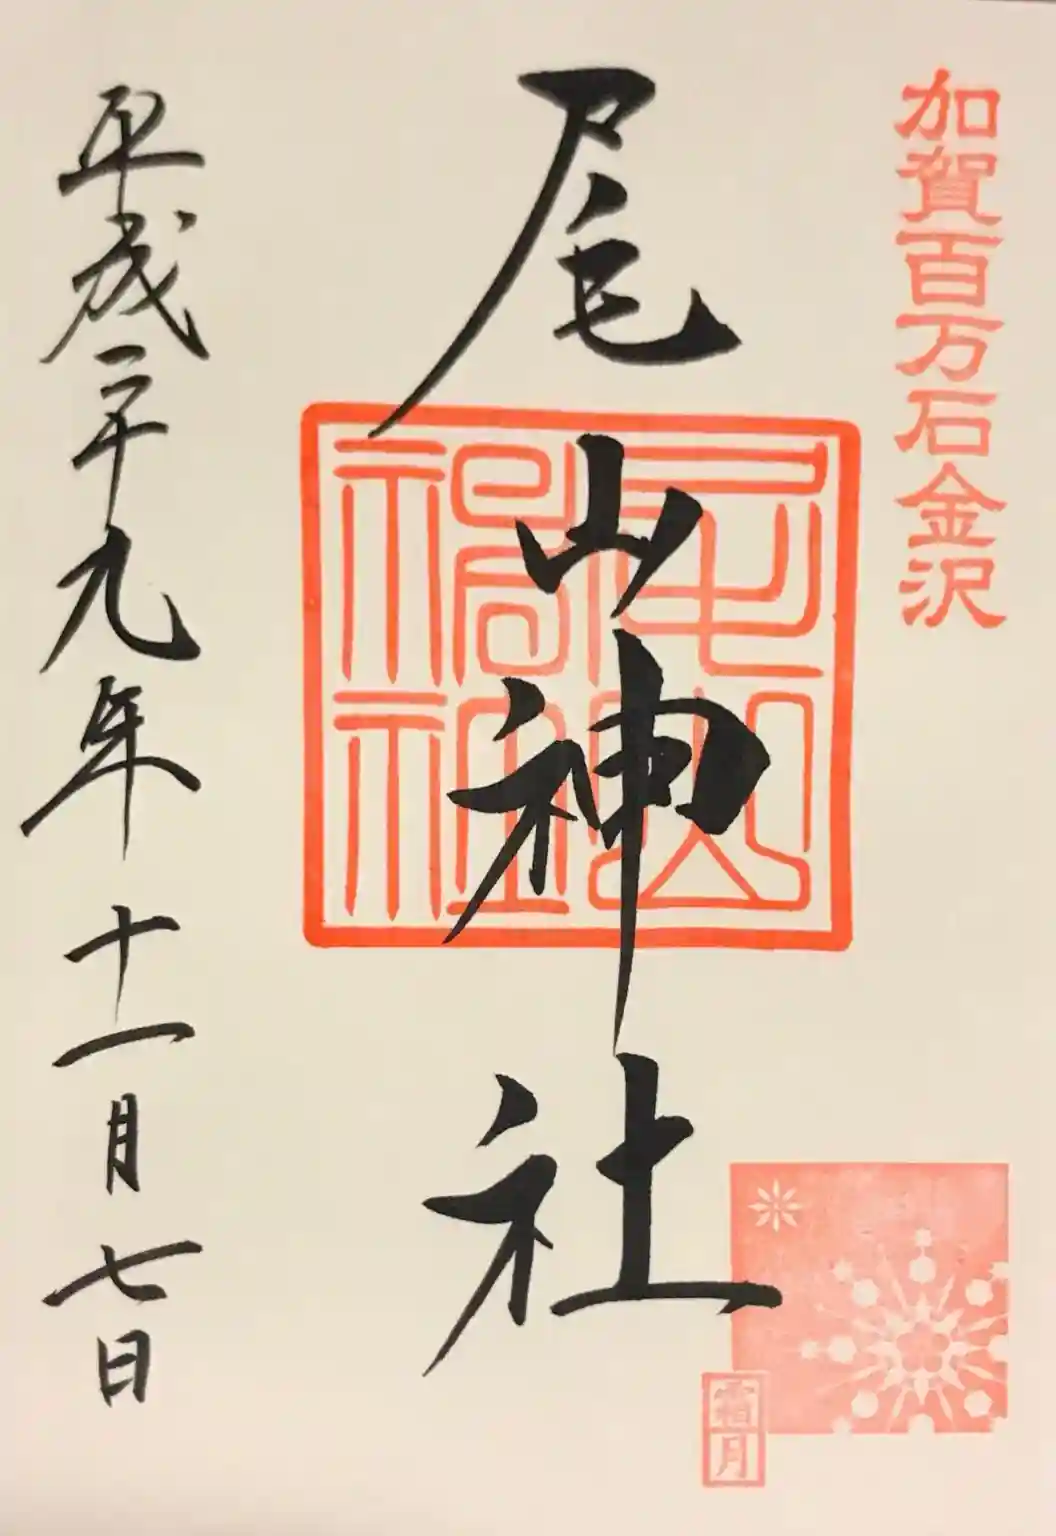 加賀百万石金沢
尾山神社
尾山
神社
霜月
平成二十九年十一月七日